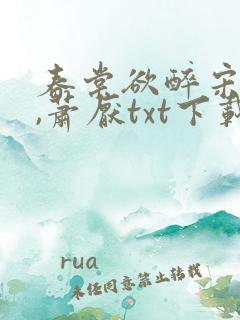 春棠欲醉宋
,肅厭txt下載
rua
未任同意禁止转载